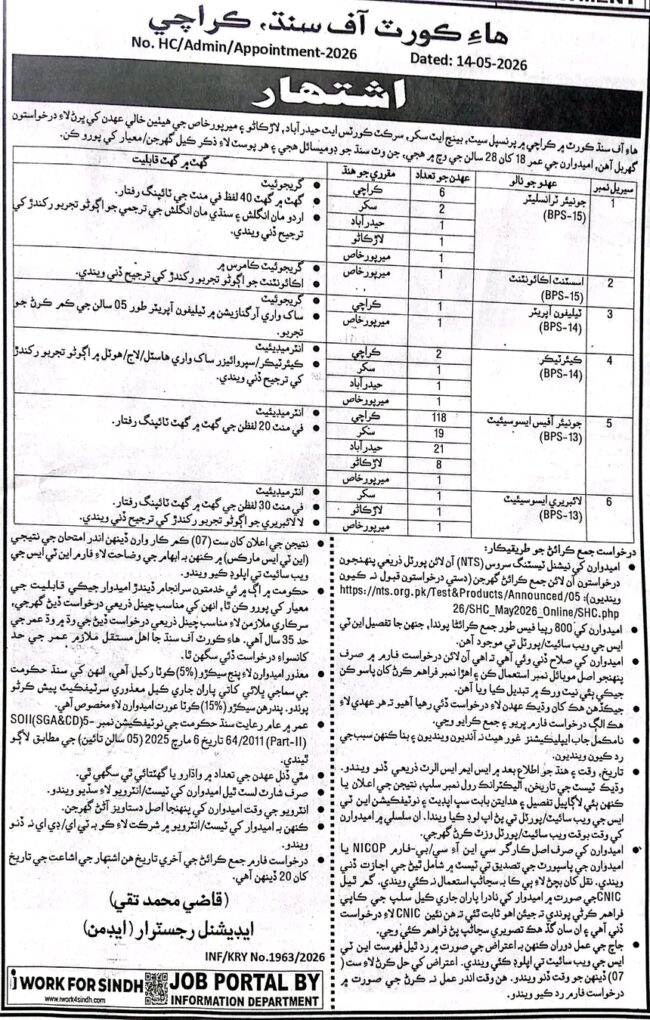 هاءِ ڪورٽ آف سنڌ، ڪراچي
No. HC/Admin/Appointment-2026 Dated: 14-05-2026
اشتهار
هاءِ آف سنڌ ڪورٽ ۾ ڪراچي ۾ پرنسپل سيٽ، بينچ ايٽ سکر، سرڪٽ ڪورٽس ايٽ حيدرآباد، لاڙڪاڻو ۽ ميرپورخاص جي هيٺين خالي عهدن کي ڀرڻ لاءِ درخواستون
گهربل آهن، اميدوارن جي عمر 18 کان 28 سالن جي وچ ۾ هجي، جن وٽ سنڌ جو ڊوميسائل هجي ۽ هر پوسٽ لاءِ ذڪر ڪيل گهرجن/معيار کي پورو ڪن.
سيريل نمبر عهدو جو نالو عهدن جو تعداد مقرري جو هنڌ گهٽ ۾ گهٽ قابليت
1 جونيئر ٽرانسليٽر (BPS-15)
6 ڪراچي
2 سکر
1 حيدرآباد
1 لاڙڪاڻو
1 ميرپورخاص
گريجوئيٽ
گهٽ ۾ گهٽ 40 لفظ في منٽ جي ٽائپنگ رفتار.
اردو مان انگلش ۽ سنڌي مان انگلش جي ترجمي جو اڳوڻو تجربو رکندڙ کي
ترجيح ڏني ويندي.
2 اسسٽنٽ اڪائونٽنٽ (BPS-15)
1 ميرپورخاص
گريجوئيٽ ڪامرس ۾
اڪائونٽنٽ جو اڳوڻو تجربو رکندڙ کي ترجيح ڏني ويندي.
3 ٽيليفون آپريٽر (BPS-14)
1 ڪراچي
1 ميرپورخاص
گريجوئيٽ
ساک واري آرگنائزيشن ۾ ٽيليفون آپريٽر طور 05 سالن جي ڪم ڪرڻ جو
تجربو.
4 ڪيئرٽيڪر (BPS-14)
2 ڪراچي
1 سکر
1 حيدرآباد
1 ميرپورخاص
انٽرميڊيئيٽ
ڪيئرٽيڪر/سپروائيزر ساک واري هاسٽل/لاج/هوٽل ۾ اڳوڻو تجربو رکندڙ
کي ترجيح ڏني ويندي.
5 جونيئر آفيس ايسوسيئيٽ (BPS-13)
118 ڪراچي
19 سکر
21 حيدرآباد
8 لاڙڪاڻو
1 ميرپورخاص
انٽرميڊيئيٽ
في منٽ 20 لفظن جي گهٽ ۾ گهٽ ٽائپنگ رفتار.
6 لائبريري ايسوسيئيٽ (BPS-13)
1 سکر
1 لاڙڪاڻو
1 ميرپورخاص
انٽرميڊيئيٽ
في منٽ 30 لفظن جي گهٽ ۾ گهٽ ٽائپنگ رفتار.
لائبريري جو اڳوڻو تجربو رکندڙ کي ترجيح ڏني ويندي.
درخواست جمع ڪرائڻ جو طريقيڪار:
اميدوارن کي نيشنل ٽيسٽنگ سروس (NTS) آن لائن پورٽل ذريعي پنهنجون
درخواستون آن لائن جمع ڪرائڻ گهرجن (دستي درخواستون قبول نه ڪيون
وينديون): https://nts.org.pk/Test&Products/Announced/05
26/SHC_May2026_Online/SHC.php
اميدوارن کي 800 رپيا فيس طور جمع ڪرائڻا پوندا، جنهن جا تفصيل اين ٽي
ايس جي ويب سائيٽ/پورٽل تي موجود آهن.
اميدوارن کي صلاح ڏني وئي آهي ته اهي آن لائن درخواست فارم ۾ صرف
پنهنجو اصل موبائل نمبر استعمال ڪن ۽ اهڙا نمبر فراهم ڪرڻ کان پاسو ڪن
جيڪي ٻئي نيٽ ورڪ ۾ تبديل ڪيا ويا آهن.
جيڪڏهن هڪ کان وڌيڪ عهدن لاءِ درخواست ڏئي رهيا آهيو ته هر عهدي لاءِ
هڪ الڳ درخواست فارم ڀريو ۽ جمع ڪرايو وڃي.
نامڪمل جاب ايپليڪيشنز غور هيٺ نه آنديون وينديون ۽ بنا ڪنهن سبب جي
رد ڪيون وينديون.
تاريخ، وقت ۽ هنڌ جو اطلاع بعد ۾ ايس ايم ايس الرٽ ذريعي ڏنو ويندو.
وڌيڪ ٽيسٽ جي تاريخن، اليڪٽرانڪ رول نمبر سلپ، نتيجن جي اعلان يا
ڪنهن ٻئي لاڳاپيل تفصيل ۽ هدايتن بابت سڀ اپڊيٽ ۽ نوٽيفڪيشن اين ٽي
ايس جي ويب سائيٽ/پورٽل تي پڻ اپ لوڊ ڪيا ويندا. ان سلسلي ۾ اميدوارن
کي وقت بوقت ويب سائيٽ/پورٽل وزٽ ڪرڻ گهرجي.
اميدوارن کي صرف اصل ڪارگر سي اين آءِ سي/بي-فارم NICOP يا
اميدوارن جي پاسپورٽ جي تصديق تي ٽيسٽ ۾ شامل ٿيڻ جي اجازت ڏني
ويندي. نقل کان بچڻ لاءِ ٻي ڪا به سڃاڻپ استعمال نه ڪئي ويندي. گم ٿيل
CNIC جي صورت ۾ اميدوار کي نادرا پاران جاري ڪيل سلپ جي ڪاپي
فراهم ڪرڻي پوندي ته جيئن اهو ثابت ٿئي ته هن نئين CNIC لاءِ درخواست
ڏني آهي ۽ ان سان گڏ هڪ تصويري سڃاڻپ پڻ فراهم ڪئي وڃي.
جاچ جي عمل دوران ڪنهن به اعتراض جي صورت ۾ رد ٿيل فهرست اين ٽي
ايس جي ويب سائيٽ تي اپلوڊ ڪئي ويندي. اعتراض کي حل ڪرڻ لاءِ ست (
07) ڏينهن جو وقت ڏنو ويندو. هن وقت اندر عمل نه ڪرڻ جي صورت ۾
درخواست فارم رد ڪيو ويندو.
نتيجن جي اعلان کان ست (07) ڪم ڪار وارن ڏينهن اندر امتحان جي نتيجي
(اين ٽي ايس مارڪس) ۾ ڪنهن به ابهام جي وضاحت لاءِ فارم اين ٽي ايس جي
ويب سائيٽ تي اپلوڊ ڪيو ويندو.
حڪومت ۾ اڳ ۾ ئي خدمتون سرانجام ڏيندڙ اميدوار جيڪي قابليت جي
معيار کي پورو ڪن ٿا، انهن کي مناسب چينل ذريعي درخواست ڏيڻ گهرجي،
سرڪاري ملازمن لاءِ مناسب چينل ذريعي درخواست ڏيڻ جي وڌ ۾ وڌ عمر جي
حد 35 سال آهي. هاءِ ڪورٽ آف سنڌ جا اهل مستقل ملازم عمر جي حد
کانسواءِ درخواست ڏئي سگهن ٿا.
معذور اميدوارن لاءِ پنج سيڪڙو (5%) ڪوٽا رکيل آهي، انهن کي سنڌ حڪومت
جي سماجي ڀلائي کاتي پاران جاري ڪيل معذوري سرٽيفڪيٽ پيش ڪرڻو
پوندو. پندرهن سيڪڙو (15%) ڪوٽا عورت اميدوارن لاءِ مخصوص آهي.
عمر ۾ عام رعايت سنڌ حڪومت جي نوٽيفڪيشن نمبر SOII(SGA&CD)5-
64/2011 (Part-II) تاريخ 6 مارچ 2025 (05 سالن تائين) جي مطابق لاڳو
ٿيندي.
مٿي ڏنل عهدن جي تعداد ۾ واڌارو يا گهٽتائي ٿي سگهي ٿي.
صرف شارٽ لسٽ ٿيل اميدوارن کي ٽيسٽ/انٽرويو لاءِ سڏيو ويندو.
انٽرويو جي وقت اميدوارن کي پنهنجا اصل دستاويز آڻڻ گهرجن.
ڪنهن به اميدوار کي ٽيسٽ/انٽرويو ۾ شرڪت لاءِ ڪو به ٽي اي/ڊي اي نه ڏنو
ويندو.
درخواست فارم جمع ڪرائڻ جي آخري تاريخ هن اشتهار جي اشاعت جي تاريخ
کان 20 ڏينهن آهي.
(قاضي محمد تقي)
ايڊيشنل رجسٽرار (ايڊمن)
INF/KRY No.1963/2026
i WORK FOR SINDH
www.iwork4sindh.com
JOB PORTAL BY
INFORMATION DEPARTMENT